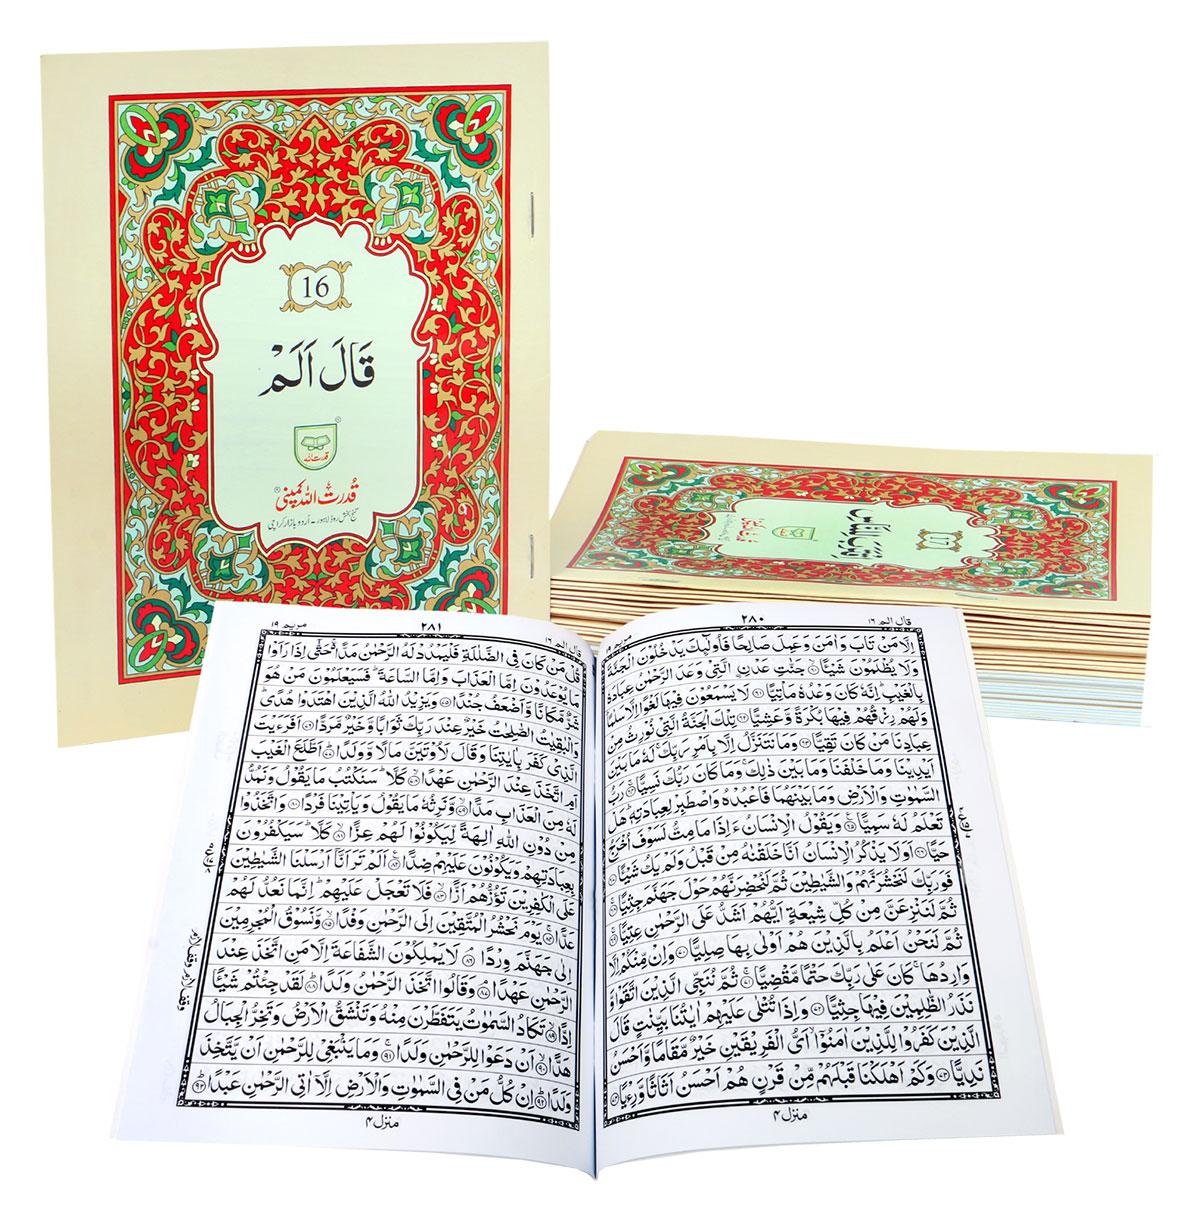 16
قَالَ اَلَمْ
قدرت اللہ
قُدرت اللہ کمپنی
گنج بخش روڈ لاہور - اُردو بازار کراچی
قال الم ١٦
٢٨٠
اِلَّا مَنْ تَابَ وَاٰمَنَ وَعَمِلَ صَالِحًا فَاُولٰٓئِكَ يَدْخُلُوْنَ الْجَنَّةَ
وَلَا يُظْلَمُوْنَ شَيْـًٔا ۙ٦٠ جَنّٰتِ عَدْنِ ِۨ الَّتِيْ وَعَدَ الرَّحْمٰنُ عِبَادَهٗ
بِالْغَيْبِ ؕ اِنَّهٗ كَانَ وَعْدُهٗ مَاْتِيًّا ٦١ لَا يَسْمَعُوْنَ فِيْهَا لَغْوًا اِلَّا سَلٰمًا ؕ
وَلَهُمْ رِزْقُهُمْ فِيْهَا بُكْرَةً وَّعَشِيًّا ٦٢ تِلْكَ الْجَنَّةُ الَّتِيْ نُوْرِثُ مِنْ
عِبَادِنَا مَنْ كَانَ تَقِيًّا ٦٣ وَمَا نَتَنَزَّلُ اِلَّا بِاَمْرِ رَبِّكَ ۚ لَهٗ مَا بَيْنَ
اَيْدِيْنَا وَمَا خَلْفَنَا وَمَا بَيْنَ ذٰلِكَ ۚ وَمَا كَانَ رَبُّكَ نَسِيًّا ۚ٦٤ رَبُّ
السَّمٰوٰتِ وَالْاَرْضِ وَمَا بَيْنَهُمَا فَاعْبُدْهُ وَاصْطَبِرْ لِعِبَادَتِهٖ ؕ هَلْ
تَعْلَمُ لَهٗ سَمِيًّا ٦٥ وَيَقُوْلُ الْاِنْسَانُ ءَاِذَا مَا مِتُّ لَسَوْفَ اُخْرَجُ
حَيًّا ٦٦ اَوَلَا يَذْكُرُ الْاِنْسَانُ اَنَّا خَلَقْنٰهُ مِنْ قَبْلُ وَلَمْ يَكُ شَيْـًٔا ٦٧
فَوَرَبِّكَ لَنَحْشُرَنَّهُمْ وَالشَّيٰطِيْنَ ثُمَّ لَنُحْضِرَنَّهُمْ حَوْلَ جَهَنَّمَ جِثِيًّا ۚ٦٨
ثُمَّ لَنَنْزِعَنَّ مِنْ كُلِّ شِيْعَةٍ اَيُّهُمْ اَشَدُّ عَلَى الرَّحْمٰنِ عِتِيًّا ۚ٦٩
ثُمَّ لَنَحْنُ اَعْلَمُ بِالَّذِيْنَ هُمْ اَوْلٰى بِهَا صِلِيًّا ٧٠ وَاِنْ مِّنْكُمْ اِلَّا
وَارِدُهَا ۚ كَانَ عَلٰى رَبِّكَ حَتْمًا مَّقْضِيًّا ۚ٧١ ثُمَّ نُنَجِّي الَّذِيْنَ اتَّقَوْا وَّ
نَذَرُ الظّٰلِمِيْنَ فِيْهَا جِثِيًّا ٧٢ وَاِذَا تُتْلٰى عَلَيْهِمْ اٰيٰتُنَا بَيِّنٰتٍ قَالَ
الَّذِيْنَ كَفَرُوْا لِلَّذِيْنَ اٰمَنُوْٓا ۙ اَيُّ الْفَرِيْقَيْنِ خَيْرٌ مَّقَامًا وَّاَحْسَنُ
نَدِيًّا ٧٣ وَكَمْ اَهْلَكْنَا قَبْلَهُمْ مِّنْ قَرْنٍ هُمْ اَحْسَنُ اَثَاثًا وَّرِءْيًا ٧٤
منزل ۴
قال الم ١٦
٢٨١
مريم ١٩
قُلْ مَنْ كَانَ فِي الضَّلٰلَةِ فَلْيَمْدُدْ لَهُ الرَّحْمٰنُ مَدًّا ۚ حَتّٰٓى اِذَا رَاَوْا
مَا يُوْعَدُوْنَ اِمَّا الْعَذَابَ وَاِمَّا السَّاعَةَ ؕ فَسَيَعْلَمُوْنَ مَنْ هُوَ
شَرٌّ مَّكَانًا وَّاَضْعَفُ جُنْدًا ٧٥ وَيَزِيْدُ اللّٰهُ الَّذِيْنَ اهْتَدَوْا هُدًى ؕ
وَالْبٰقِيٰتُ الصّٰلِحٰتُ خَيْرٌ عِنْدَ رَبِّكَ ثَوَابًا وَّخَيْرٌ مَّرَدًّا ٧٦ اَفَرَءَيْتَ
الَّذِيْ كَفَرَ بِاٰيٰتِنَا وَقَالَ لَاُوْتَيَنَّ مَالًا وَّوَلَدًا ؕ٧٧ اَطَّلَعَ الْغَيْبَ
اَمِ اتَّخَذَ عِنْدَ الرَّحْمٰنِ عَهْدًا ۙ٧٨ كَلَّا ؕ سَنَكْتُبُ مَا يَقُوْلُ وَنَمُدُّ
لَهٗ مِنَ الْعَذَابِ مَدًّا ۙ٧٩ وَّنَرِثُهٗ مَا يَقُوْلُ وَيَاْتِيْنَا فَرْدًا ٨٠ وَاتَّخَذُوْا
مِنْ دُوْنِ اللّٰهِ اٰلِهَةً لِّيَكُوْنُوْا لَهُمْ عِزًّا ۙ٨١ كَلَّا ؕ سَيَكْفُرُوْنَ
بِعِبَادَتِهِمْ وَيَكُوْنُوْنَ عَلَيْهِمْ ضِدًّا ٨٢ اَلَمْ تَرَ اَنَّآ اَرْسَلْنَا الشَّيٰطِيْنَ
عَلَى الْكٰفِرِيْنَ تَؤُزُّهُمْ اَزًّا ۙ٨٣ فَلَا تَعْجَلْ عَلَيْهِمْ ؕ اِنَّمَا نَعُدُّ لَهُمْ
عَدًّا ۚ٨٤ يَوْمَ نَحْشُرُ الْمُتَّقِيْنَ اِلَى الرَّحْمٰنِ وَفْدًا ۙ٨٥ وَّنَسُوْقُ الْمُجْرِمِيْنَ
اِلٰى جَهَنَّمَ وِرْدًا ۘ٨٦ لَا يَمْلِكُوْنَ الشَّفَاعَةَ اِلَّا مَنِ اتَّخَذَ عِنْدَ
الرَّحْمٰنِ عَهْدًا ۘ٨٧ وَقَالُوا اتَّخَذَ الرَّحْمٰنُ وَلَدًا ؕ٨٨ لَقَدْ جِئْتُمْ شَيْـًٔا
اِدًّا ۙ٨٩ تَكَادُ السَّمٰوٰتُ يَتَفَطَّرْنَ مِنْهُ وَتَنْشَقُّ الْاَرْضُ وَتَخِرُّ الْجِبَالُ
هَدًّا ۙ٩٠ اَنْ دَعَوْا لِلرَّحْمٰنِ وَلَدًا ۚ٩١ وَمَا يَنْۢبَغِيْ لِلرَّحْمٰنِ اَنْ يَّتَّخِذَ
وَلَدًا ؕ٩٢ اِنْ كُلُّ مَنْ فِي السَّمٰوٰتِ وَالْاَرْضِ اِلَّآ اٰتِي الرَّحْمٰنِ عَبْدًا ؕ٩٣
منزل ۴